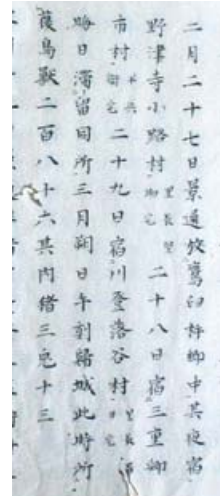 二月二十七日景通放鷹臼杵郷中其夜宿
野津寺小路村里長宅二十八日宿三重郷
市村宅二十九日宿川登落谷村里長宅
晦日滞留同所三月朔日午刻歸城此時所
獲鳥獣二百八十六其内猪三兎十三